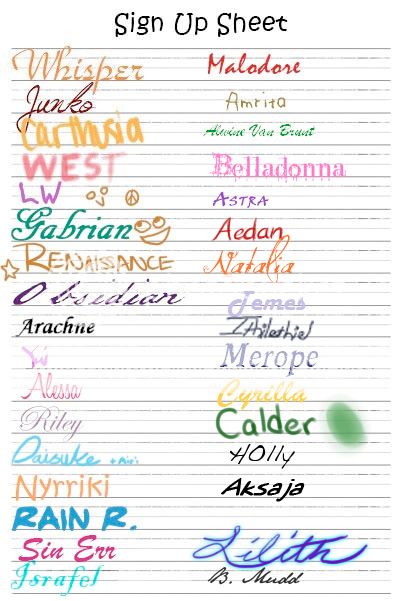 Sign Up Sheet
Whisper
Junko
Carthusia
WEST
LW
Gabrian
RENAISSANCE
Obsidian
Arachne
Yui
Alessa
Riley
Daisuke + Airi
Nyrriki
RAIN R.
Sin Err
Israfel
Malodore
Amrita
Alwine Van Brunt
Belladonna
ASTRA
Aedan
Natalia
Jemes
Ithilethiel
Merope
Cyrilla
Calder
HOlly
Aksaja
Lilith
B. Mudd